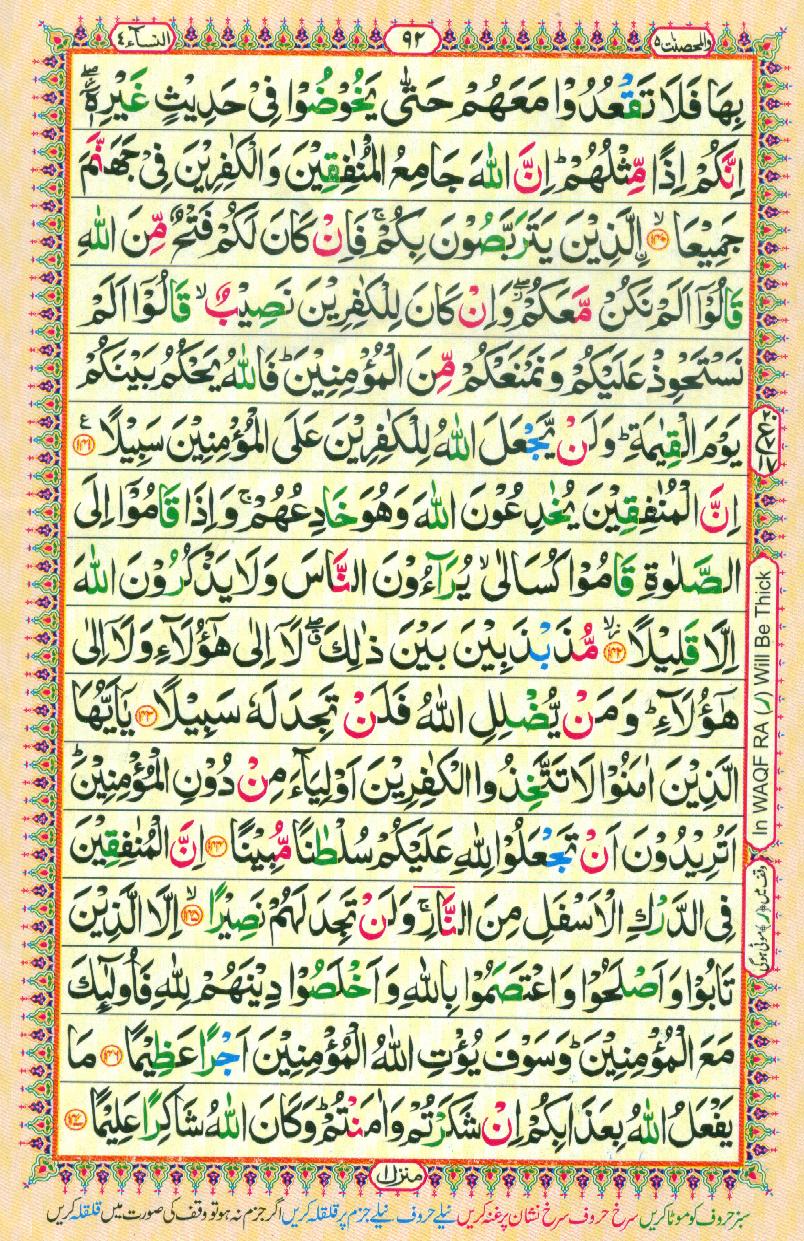 النساء ٤
٩٢
والمحصنت ٥
بِهَا فَلَا تَقْعُدُوْا مَعَهُمْ حَتّٰى يَخُوْضُوْا فِىْ حَدِيْثٍ غَيْرِهٖٓ ۖ
اِنَّكُمْ اِذًا مِّثْلُهُمْ ؕ اِنَّ اللّٰهَ جَامِعُ الْمُنٰفِقِيْنَ وَالْكٰفِرِيْنَ فِىْ جَهَنَّمَ
جَمِيْعَا ۙ‏﴿۱۴۰﴾ اۨلَّذِيْنَ يَتَرَبَّصُوْنَ بِكُمْ ۚ فَاِنْ كَانَ لَكُمْ فَتْحٌ مِّنَ اللّٰهِ
قَالُوْۤا اَلَمْ نَكُنْ مَّعَكُمْ ۖ وَاِنْ كَانَ لِلْكٰفِرِيْنَ نَصِيْبٌ ۙ قَالُوْۤا اَلَمْ
نَسْتَحْوِذْ عَلَيْكُمْ وَنَمْنَعْكُمْ مِّنَ الْمُؤْمِنِيْنَ ؕ فَاللّٰهُ يَحْكُمُ بَيْنَكُمْ
يَوْمَ الْقِيٰمَةِ ؕ وَلَنْ يَّجْعَلَ اللّٰهُ لِلْكٰفِرِيْنَ عَلَى الْمُؤْمِنِيْنَ سَبِيْلًا ﴿۱۴۱﴾ ع
اِنَّ الْمُنٰفِقِيْنَ يُخٰدِعُوْنَ اللّٰهَ وَهُوَ خَادِعُهُمْ ۚ وَاِذَا قَامُوْۤا اِلَى
الصَّلٰوةِ قَامُوْا كُسَالٰى ۙ يُرَآءُوْنَ النَّاسَ وَلَا يَذْكُرُوْنَ اللّٰهَ
اِلَّا قَلِيْلًا ۙ ﴿۱۴۲﴾ مُّذَبْذَبِيْنَ بَيْنَ ذٰلِكَ ۖ لَاۤ اِلٰى هٰٓؤُلَآءِ وَلَاۤ اِلٰى
هٰٓؤُلَآءِ ؕ وَمَنْ يُّضْلِلِ اللّٰهُ فَلَنْ تَجِدَ لَهٗ سَبِيْلًا ﴿۱۴۳﴾ يٰۤاَيُّهَا
الَّذِيْنَ اٰمَنُوْا لَا تَتَّخِذُوا الْكٰفِرِيْنَ اَوْلِيَآءَ مِنْ دُوْنِ الْمُؤْمِنِيْنَ ؕ
اَتُرِيْدُوْنَ اَنْ تَجْعَلُوْا لِلّٰهِ عَلَيْكُمْ سُلْطٰنًا مُّبِيْنًا ﴿۱۴۴﴾ اِنَّ الْمُنٰفِقِيْنَ
فِى الدَّرْكِ الْاَسْفَلِ مِنَ النَّارِ ۚ وَلَنْ تَجِدَ لَهُمْ نَصِيْرًا ۙ ﴿۱۴۵﴾ اِلَّا الَّذِيْنَ
تَابُوْا وَاَصْلَحُوْا وَاعْتَصَمُوْا بِاللّٰهِ وَاَخْلَصُوْا دِيْنَهُمْ لِلّٰهِ فَاُولٰٓئِكَ
مَعَ الْمُؤْمِنِيْنَ ؕ وَسَوْفَ يُؤْتِ اللّٰهُ الْمُؤْمِنِيْنَ اَجْرًا عَظِيْمًا ﴿۱۴۶﴾ مَا
يَفْعَلُ اللّٰهُ بِعَذَابِكُمْ اِنْ شَكَرْتُمْ وَاٰمَنْتُمْ ؕ وَكَانَ اللّٰهُ شَاكِرًا عَلِيْمًا ﴿۱۴۷﴾
In WAQF RA (ر) Will Be Thick
وقف میں (ر) موٹی ہوگی
منزل ۱
سبز حروف کو موٹا کریں سرخ حروف سرخ نشان پر غنہ کریں نیلے حروف نیلے جزم پر قلقلہ کریں اگر جزم نہ ہو تو وقف کی صورت میں قلقلہ کریں